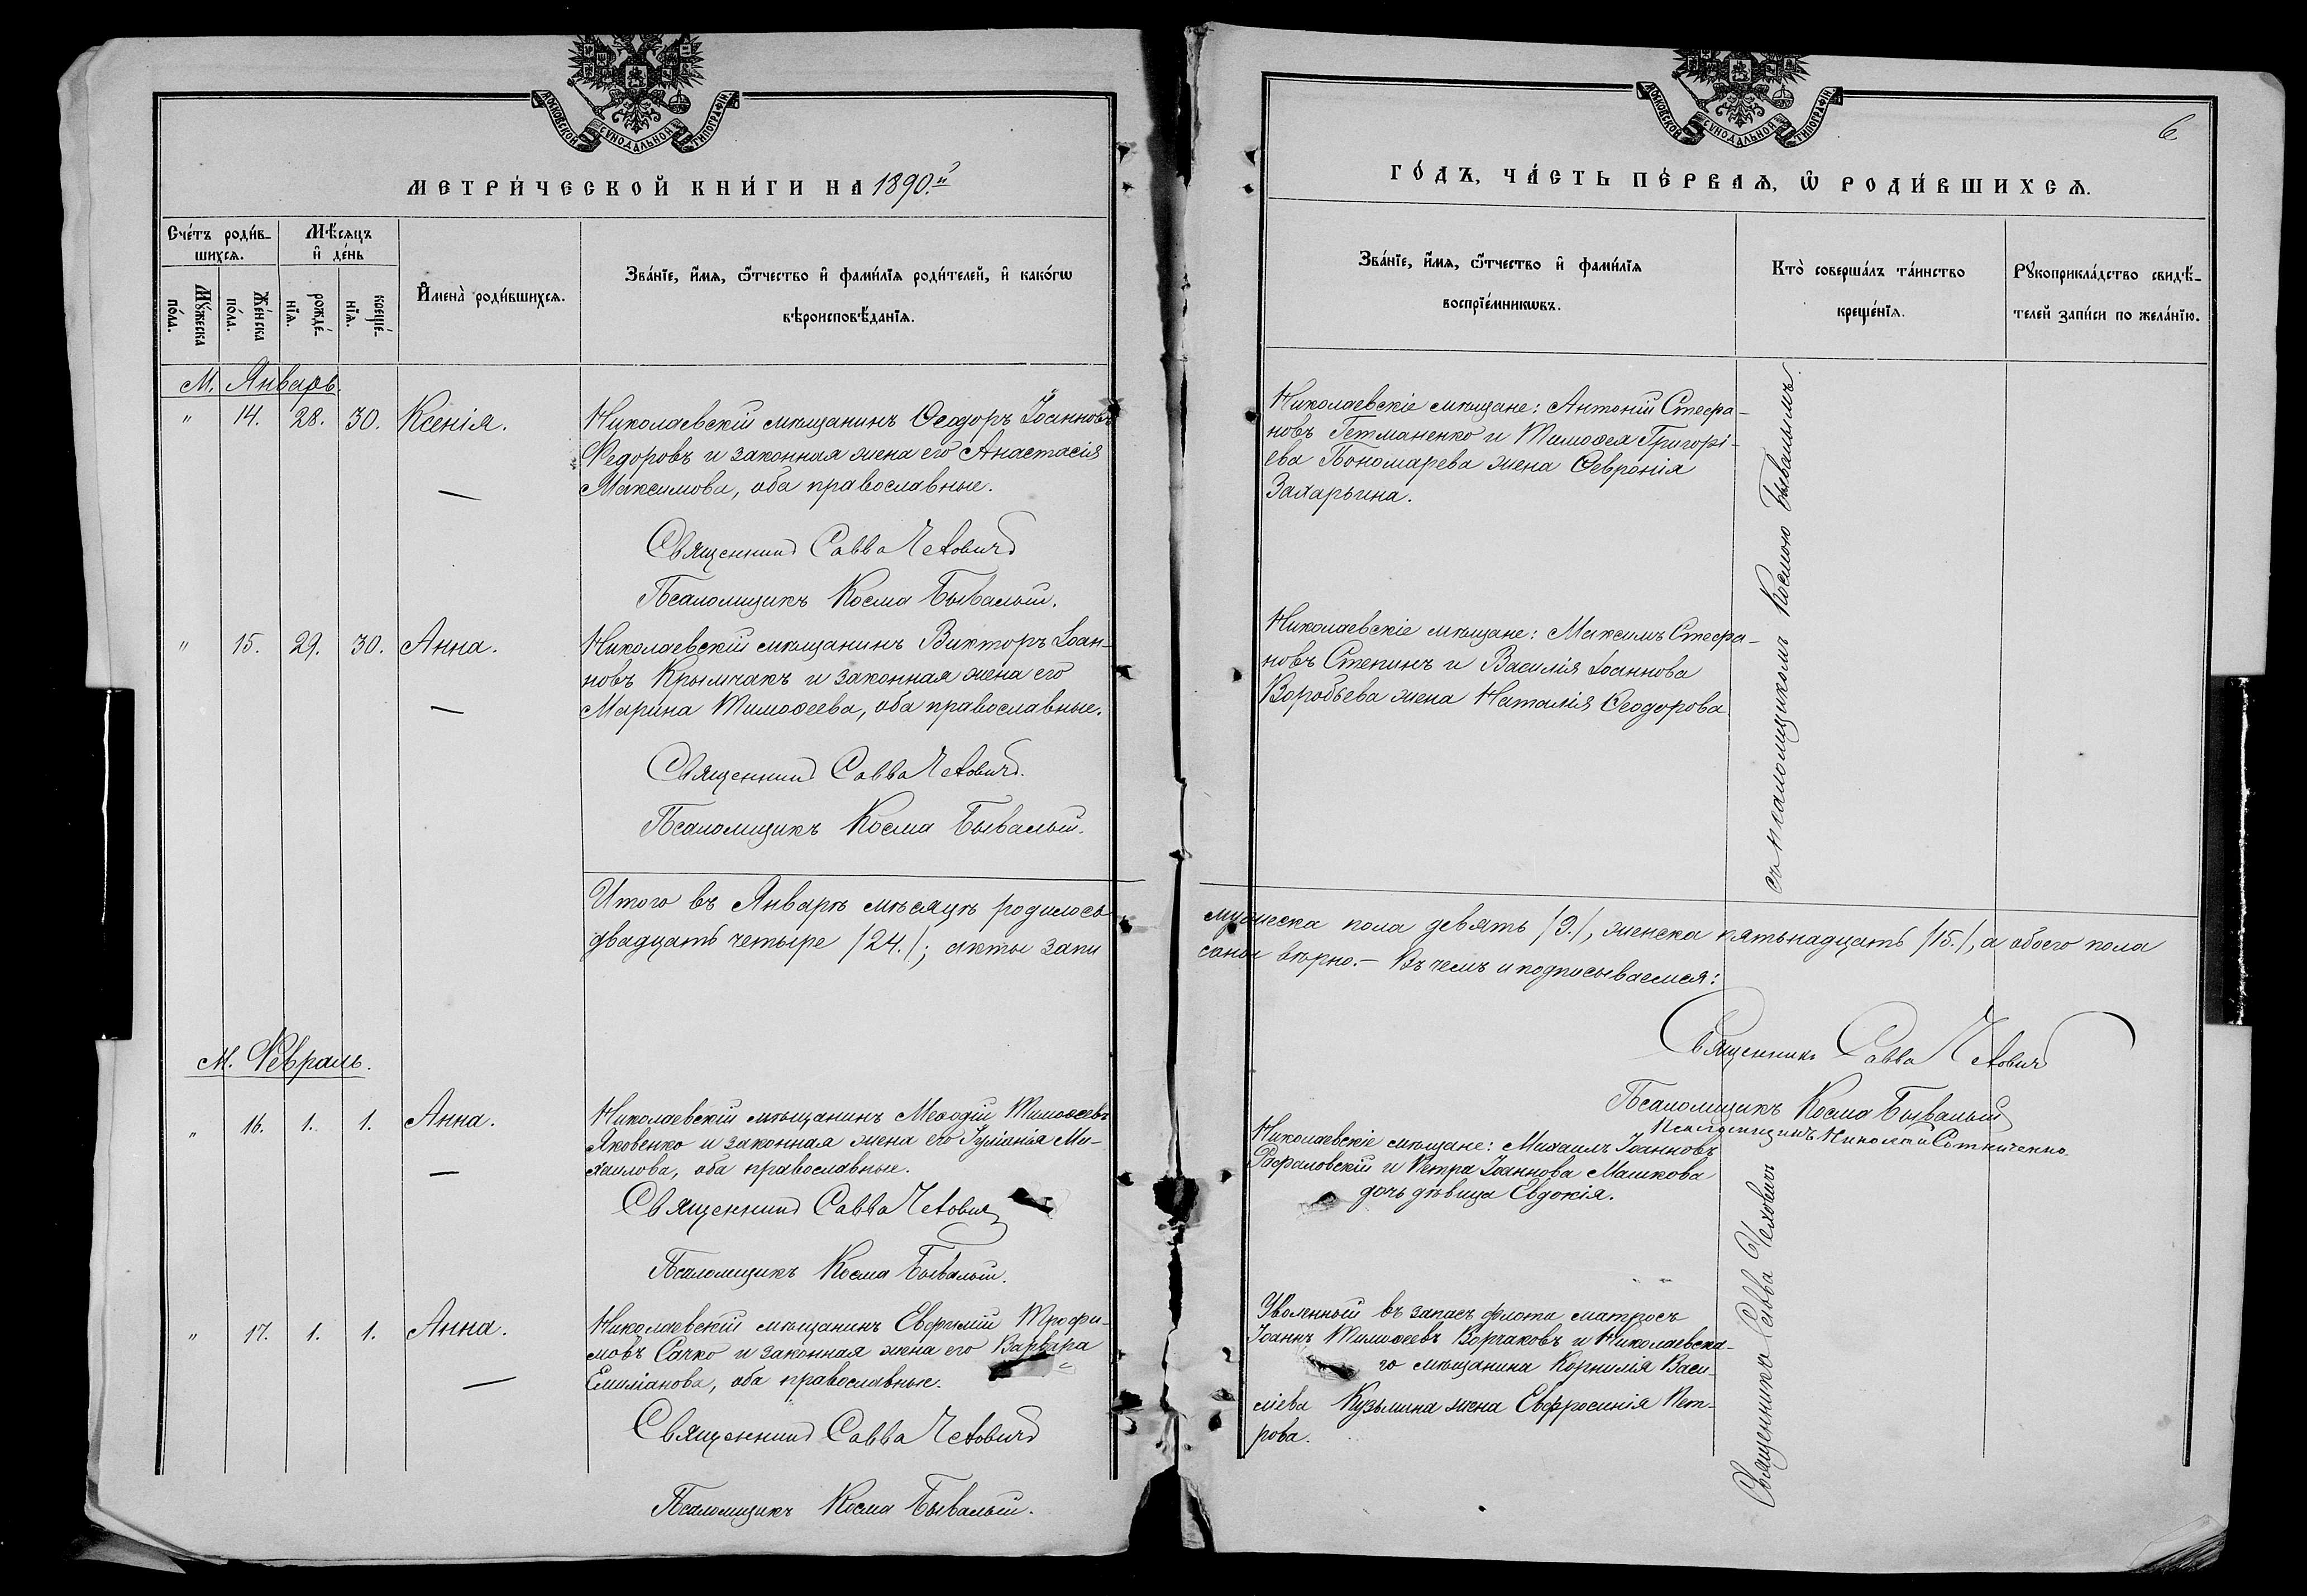 МОСКОВСКОЙ СѴНОДАЛЬНОЙ ТИПОГРАФІИ
МЕТРИ́ЧЕСКОЙ КНИ́ГИ НА 1890.й
Сче́тъ роди́в-
шихсѧ.
Мꙋ́жеска
по́ла.
Же́нска
по́ла.
Мѣ́сѧцъ
и҆ де́нь
рожде́-
нїѧ.
креще́-
нїѧ.
И҆мена̀ роди́вшихсѧ.
Зва́нїе, и҆́мѧ, ѻ҆́тчество и҆ фами́лїѧ роди́телей, и҆ како́гѡ
вѣроисповѣ́данїѧ.
М. Январь.
" 14. 28. 30. Ксенія.
Николаевскій мѣщанинъ Ѳеодоръ Іоанновъ
Федоровъ и законная жена его Анастасія
Максимова, оба православные.
Священникъ Савва Чехович
Псаломщикъ Косма Бывалый.
" 15. 29. 30. Анна.
Николаевскій мѣщанинъ Викторъ Іоан-
новъ Крымчакъ и законная жена его
Марина Тимоѳеева, оба православные.
Священникъ Савва Чехович.
Псаломщикъ Косма Бывалый.
Итого въ Январѣ мѣсяцѣ родилось
двадцать четыре /24./; акты запи
М. Февраль.
" 16. 1. 1. Анна.
Николаевскій мѣщанинъ Меѳодій Тимоѳеевъ
Яковенко и законная жена его Іуліанія Ми-
хаилова, оба православные.
Священникъ Савва Чехович
Псаломщикъ Косма Бывалый.
" 17. 1. 1. Анна.
Николаевскій мѣщанинъ Евфимій Трофи-
мовъ Сачко и законная жена его Варвара
Емиліанова, оба православные.
Священникъ Савва Чехович
Псаломщикъ Косма Бывалый.
МОСКОВСКОЙ СѴНОДАЛЬНОЙ ТИПОГРАФІИ
6
ГО́ДЪ, ЧА́СТЬ ПЕ́РВАѦ, Ѡ҆ РОДИ́ВШИХСѦ.
Зва́нїе, и҆́мѧ, ѻ҆́тчество и҆ фами́лїѧ
воспрїе́мникѡвъ.
Кто̀ соверша́лъ та́инство
креще́нїѧ.
Рꙋкоприкла́дство свидѣ́-
телей за́писи по жела́нїю.
Николаевскіе мѣщане: Антоній Стефа-
новъ Гетманенко и Тимоѳея Григорі-
ева Пономарева жена Ѳевронія
Захарьина.
Николаевскіе мѣщане: Максимъ Стефа-
новъ Степинъ и Василія Іоаннова
Воробьева жена Наталія Ѳеодорова
съ псаломщикомъ Космою Бывалымъ.
мужеска пола девять /9./, женска пятьнадцать /15./, а обоего пола
саны вѣрно. — Въ чемъ и подписываемся:
Священникъ Савва Чехович
Псаломщикъ Косма Бывалый
Псаломщикъ Николай Сотниченко.
Николаевскіе мѣщане: Михаилъ Іоанновъ
Рафаловскій и Петра Іоаннова Машкова
дочь дѣвица Евдокія.
Уволенный въ запасъ флота матросъ
Іоаннъ Тимоѳеевъ Корчаковъ и Николаевска-
го мѣщанина Корнилія Васи-
ліева Кузьмина жена Евфросинія Пет-
рова.
Священникъ Савва Чеховичъ